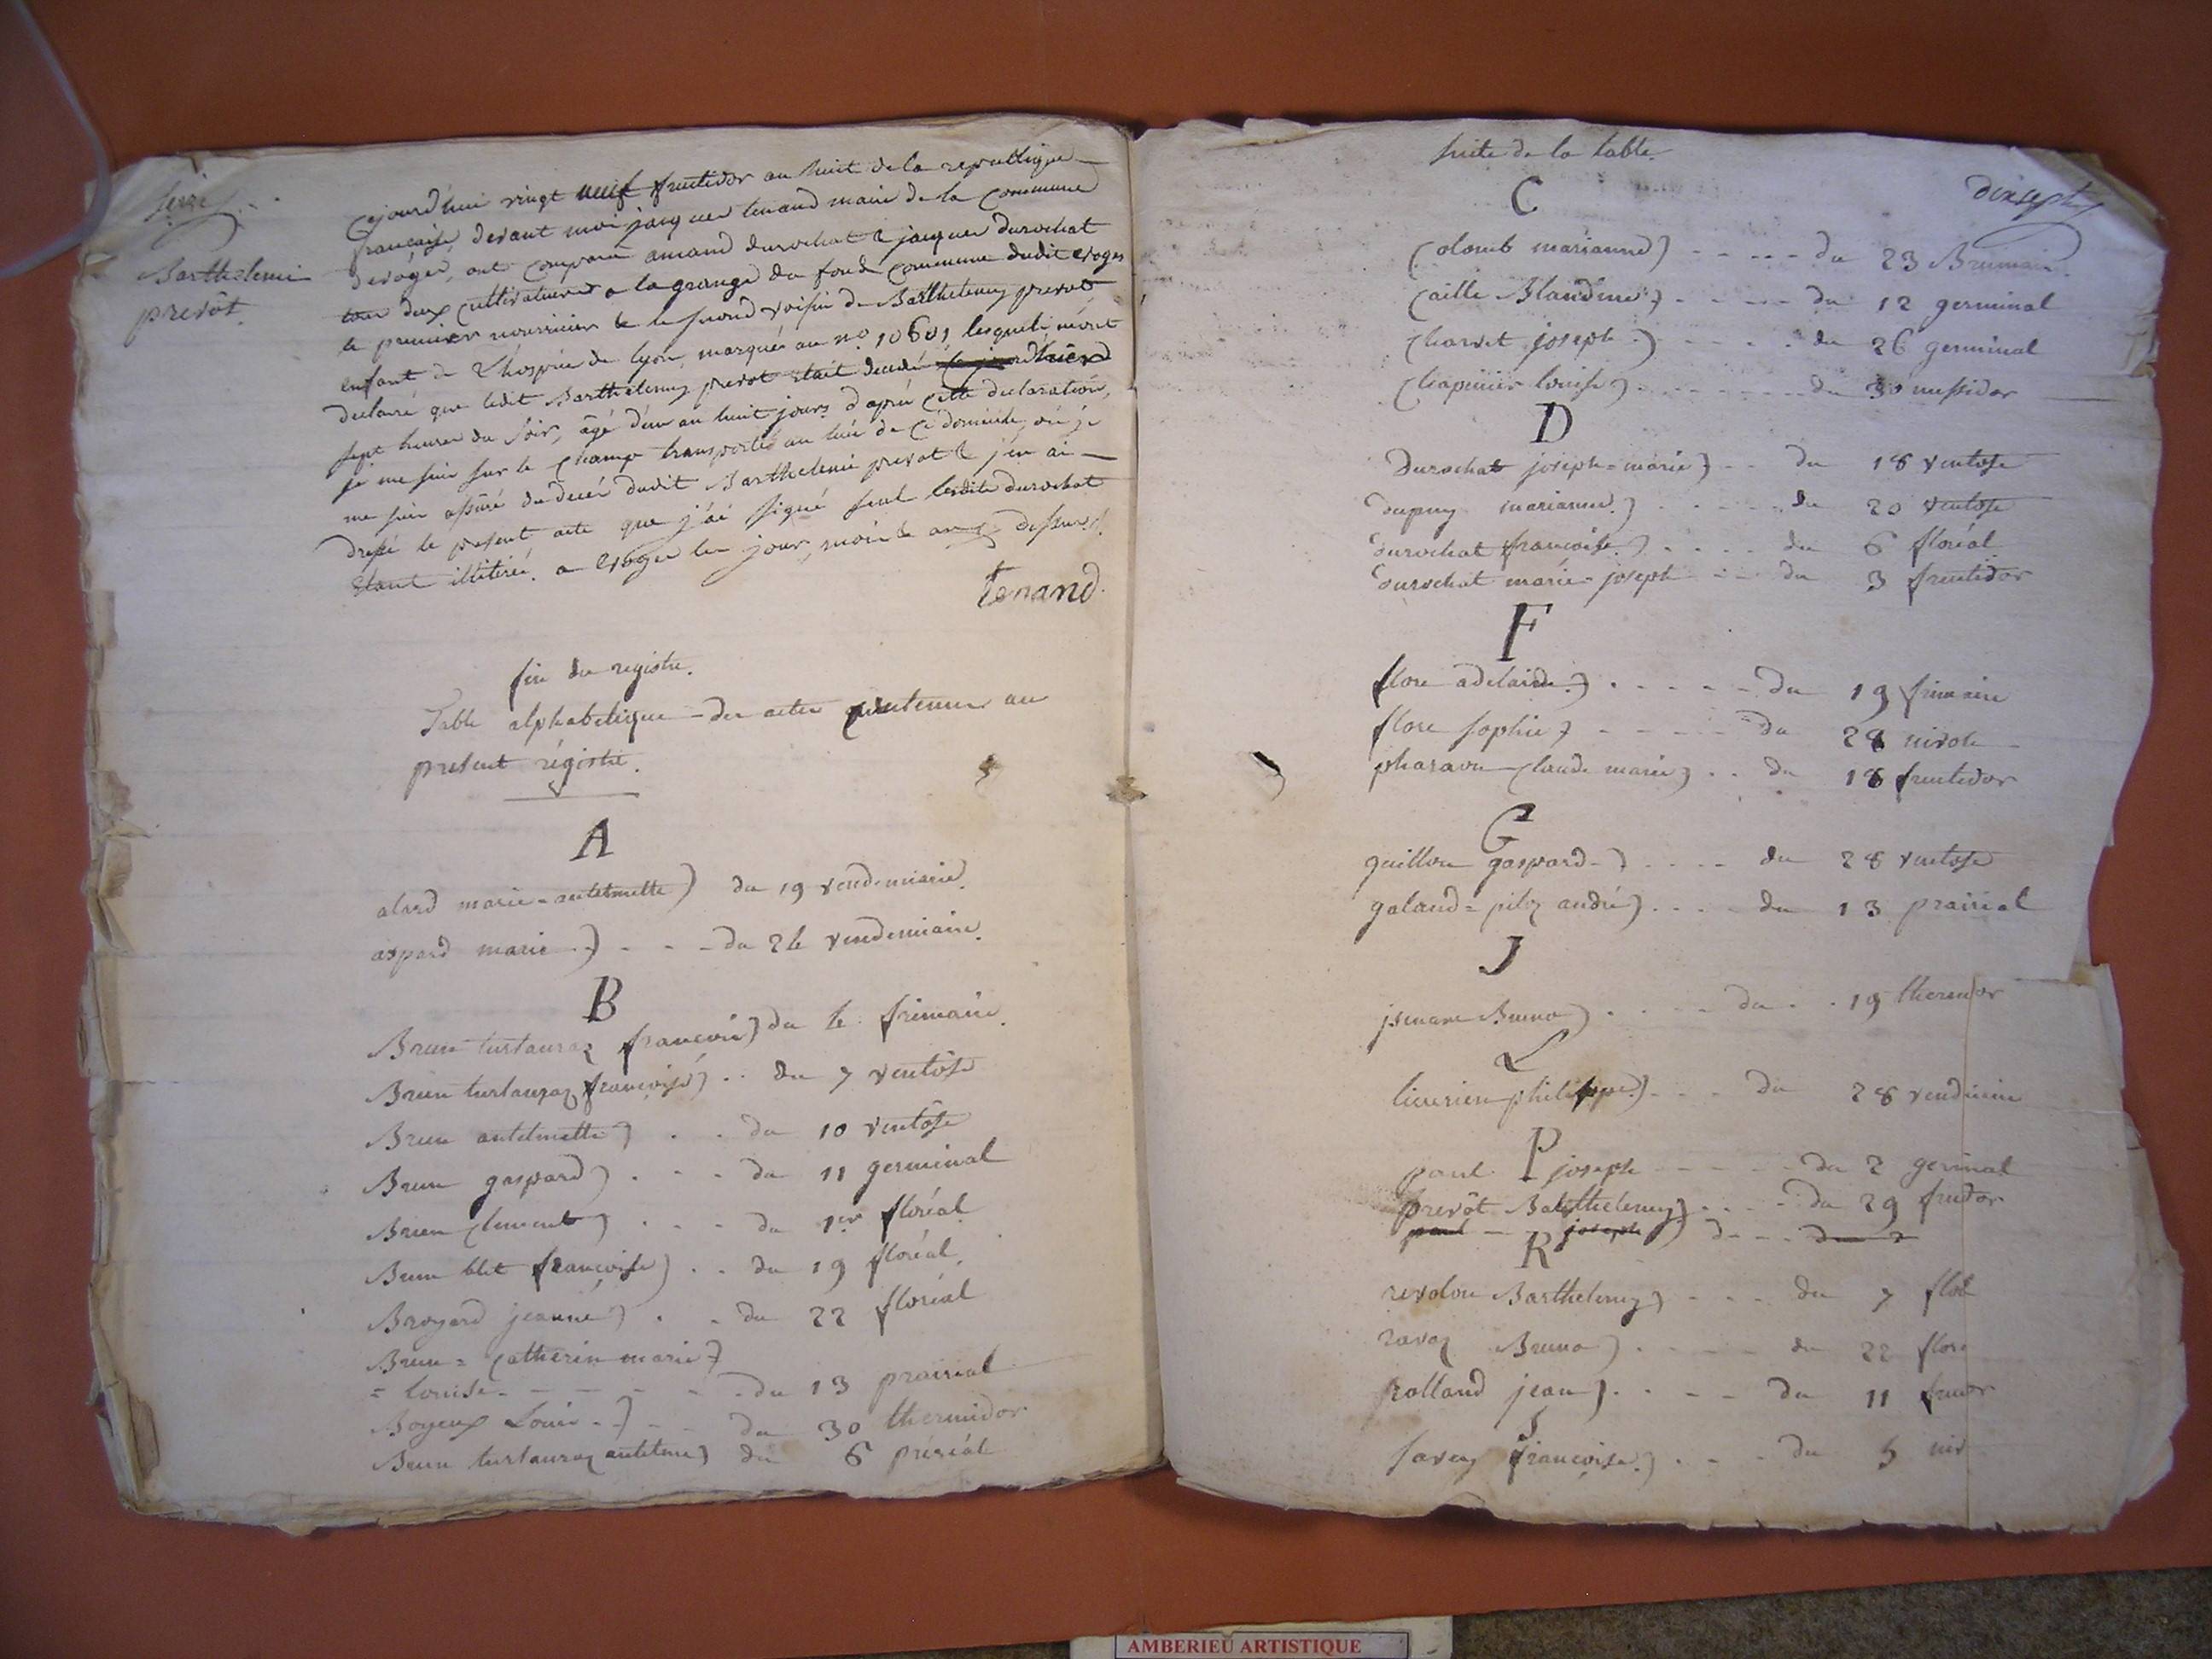 seize
Barthelemi
prevôt.
Cejourd'hui vingt neuf fructidor an huit de la republique
française, devant moi jacques tenand maire de la commune
d'evoges, ont comparu amand durochat & jacques durochat
tous deux cultivateurs a la grange du fond commune dudit evoges
le premier nourricier & le second voisin de Barthelemy prevot
enfant de l'hospice de lyon, marqué au n.o 10601 lesquels m'ont
declaré que ledit Barthelemy prevot etait decedé hier
sept heures du soir, agé d'un an huit jours d'aprés cette declaration,
je me suis sur le champ transporté au lieu de ce domicile, où je
me suis assûré du decés dudit Barthelemi prevot & j'en ai
dressé le present acte que j'ai signé seul lesdits durochat
étant illitérés. a evoges les jour, mois & an dessus.
Tenand.
fin du registre.
Table alphabetique des actes contenus au
present régistre.
A
alard marie=antelmette) du 19 vendemiaire.
aspard marie) - - - du 24 vendemiaire.
B
Brun turtauraz françois) du 4 frimaire.
Brun turtauraz françoise) .. du 7 ventôse
Brun antelmette) . . du 10 ventôse
Brun gaspard) . - - du 11 germinal
Brun clement) . - - du 1er floréal
Brun blet françoise) . . du 19 floréal.
Broyard jeanne) . - du 22 floréal
Brun = Catherin marie)
= louise - - - - - - du 13 prairial
Boyeux Louis -) - - du 30 thermidor
Brun turtauraz antelme) du 6 preréal
suite de la table.
dixsept
C
Colomb marianne) - - - - du 23 Brumaire.
Caille Blandine) - - - - du 12 germinal
Charvet joseph) - - - - du 26 germinal
Chapuisier louise) - - - - du 30 messidor
D
Durochat joseph=marie) - - du 18 ventose
dupuy marianne.) - - - - du 20 ventose
durochat françoise) . . . . du 6 floréal.
durochat marie=joseph - - du 3 fructidor
F
flore adelaide.) . - - - - du 19 frimaire
flore sophie) - - - - - du 28 nivose
pharaon Claude marie) . . du 18 fructidor
G
guillon gaspard-) . . . - du 28 ventose
galand= piloz andré) . . . - du 13 prairial
J
Bruno) . . . - du . . 19 thermidor
L
philippe.) - - - du 28 vend
P
paul joseph - - - - - du 2 germinal
prevôt Barthelemy) . . . - du 29 frutor
paul - joseph) - - -
R
revolon Barthelemy) - - - du 7 flo
ravoz Bruno) . - - - - du 22 flor
rolland jean) . . - - du 11 fruor
S
savey françoise.) . . - - du 5 niv
AMBERIEU ARTISTIQUE